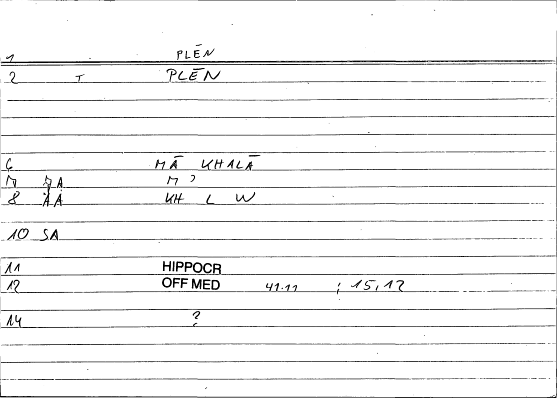 1 PLĒN
2 T PLĒN
6 MĀ KHALĀ
M ʾ
8 ĀĀ KH L W
10 SA
11 HIPPOCR
12 OFF MED 41.11 ; 15,12
14 ?